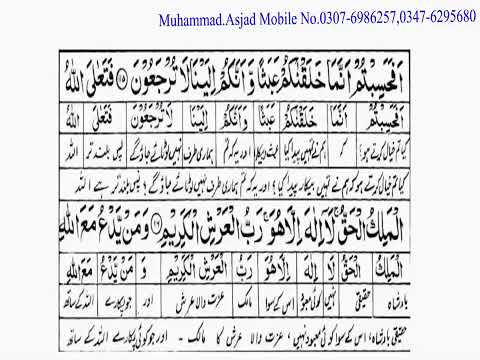 Muhammad.Asjad Mobile No.0307-6986257,0347-6295680
اَفَحَسِبْتُمْ اَنَّمَا خَلَقْنٰكُمْ عَبَثًا وَّاَنَّكُمْ اِلَيْنَا لَا تُرْجَعُوْنَ ﴿۱۱۵﴾ فَتَعٰلَى اللّٰهُ
اَفَحَسِبْتُمْ اَنَّمَا خَلَقْنٰكُمْ عَبَثًا وَّاَنَّكُمْ اِلَيْنَا لَا تُرْجَعُوْنَ فَتَعٰلَى اللّٰهُ
کیا تم خیال کرتے ہو کہ ہم نے تمہیں پیدا کیا عبث (بیکار) اور یہ کہ تم ہماری طرف نہیں لوٹائے جاؤ گے پس بلند تر اللہ
کیا تم خیال کرتے ہو کہ ہم نے تمہیں بیکار پیدا کیا؟ اور یہ کہ تم ہماری طرف نہیں لوٹائے جاؤ گے؟ پس بلند تر ہے اللہ
الْمَلِكُ الْحَقُّ لَاۤ اِلٰهَ اِلَّا هُوَ رَبُّ الْعَرْشِ الْكَرِيْمِ ﴿۱۱۶﴾ وَمَنْ يَّدْعُ مَعَ اللّٰهِ
الْمَلِكُ الْحَقُّ لَاۤ اِلٰهَ اِلَّا هُوَ رَبُّ الْعَرْشِ الْكَرِيْمِ وَ مَنْ يَّدْعُ مَعَ اللّٰهِ
بادشاہ حقیقی نہیں کوئی معبود اس کے سوا مالک عزت والا عرش اور جو پکارے اللہ کے ساتھ
حقیقی بادشاہ، اس کے سوا کوئی معبود نہیں، عزت والا عرش کا مالک ۔ اور جو کوئی پکارے اللہ کے ساتھ